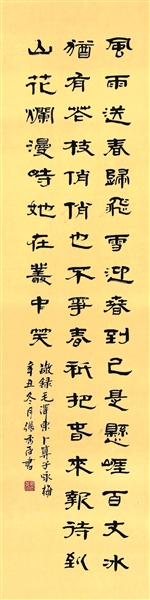 風雨送春歸飛雪迎春到已是懸崖百丈冰
猶有花枝俏俏也不爭春祇把春來報待到
山花爛漫時她在叢中笑
敬録毛澤東卜算子咏梅
辛丑冬月張秀書